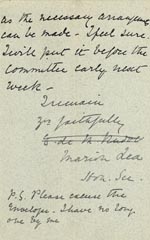 as the necessary arrangemts
can be made - I feel sure.
I will put it before the
committee early next
week -
I remain
Yrs faithfully
Marion Lea
Hon. Sec
P.S. Please excuse this
Envelope. I have no long
one by me